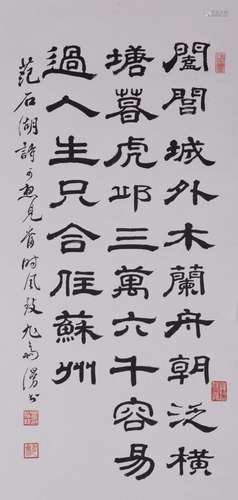 閶閭城外木蘭舟朝泛橫
塘暮虎邱三萬六千容易
過人生只合住蘇州
范石湖詩可想見前時風致九喬漫書